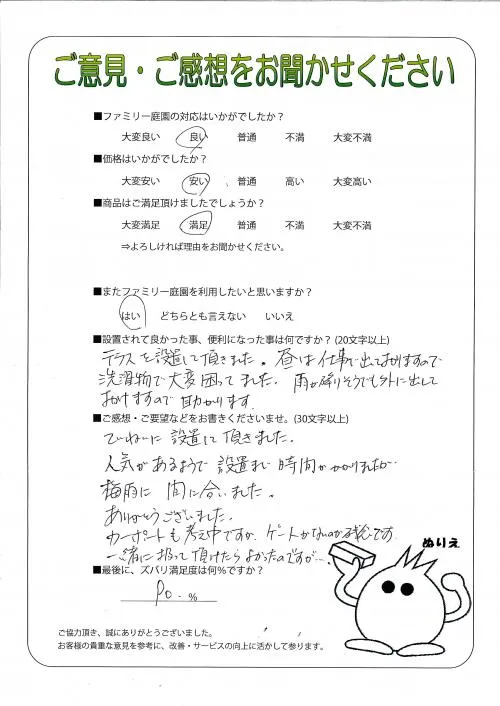 ご意見・ご感想をお聞かせください
■ファミリー庭園の対応はいかがでしたか？
大変良い 良い 普通 不満 大変不満
■価格はいかがでしたか？
大変安い 安い 普通 高い 大変高い
■商品はご満足頂けましたでしょうか？
大変満足 満足 普通 不満 大変不満
⇒よろしければ理由をお聞かせください。
■またファミリー庭園を利用したいと思いますか？
はい どちらとも言えない いいえ
■設置されて良かった事、便利になった事は何ですか？(20文字以上)
テラスを設置して頂きました。昼は仕事で出ておりますので
洗濯物で大変困ってました。雨が降りそうでも外に出して
おけますので助かります
■ご感想・ご要望などをお書きくださいませ。(30文字以上)
ていねいに設置して頂きました。
人気があるようで設置まで時間がかかりましたが
梅雨に間に合いました。
ありがとうございました。
カーポートも考え中ですが、ゲートがないのが残念です
一緒に扱って頂けたらよかったのですが…。
■最後に、ズバリ満足度は何％ですか？
90.％
ぬりえ
ご協力頂き、誠にありがとうございました。
お客様の貴重な意見を参考に、改善・サービスの向上に活かして参ります。